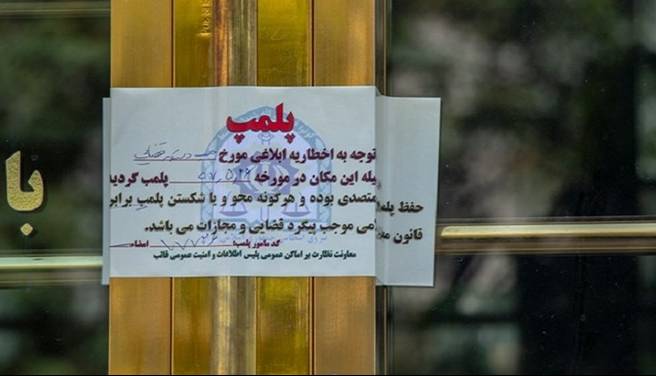 پلمپ
توجه به اخطاریه ابلاغی مورخ
یله این مکان در مورخه پلمپ گردید
حفظ پلم
متصدی بوده و هرگونه محو و یا شکستن پلمپ برابر
امی موجب پیگرد قضایی و مجازات می باشد.
قانون
کد مامور پلمپ: امضاء
معاونت نظارت بر اماکن عمومی پلیس اطلاعات و امنیت عمومی فاتب
با